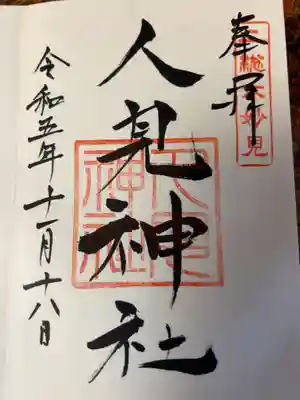 奉拝
上総大妙見
人見神社
人見神社
令和五年十一月十八日